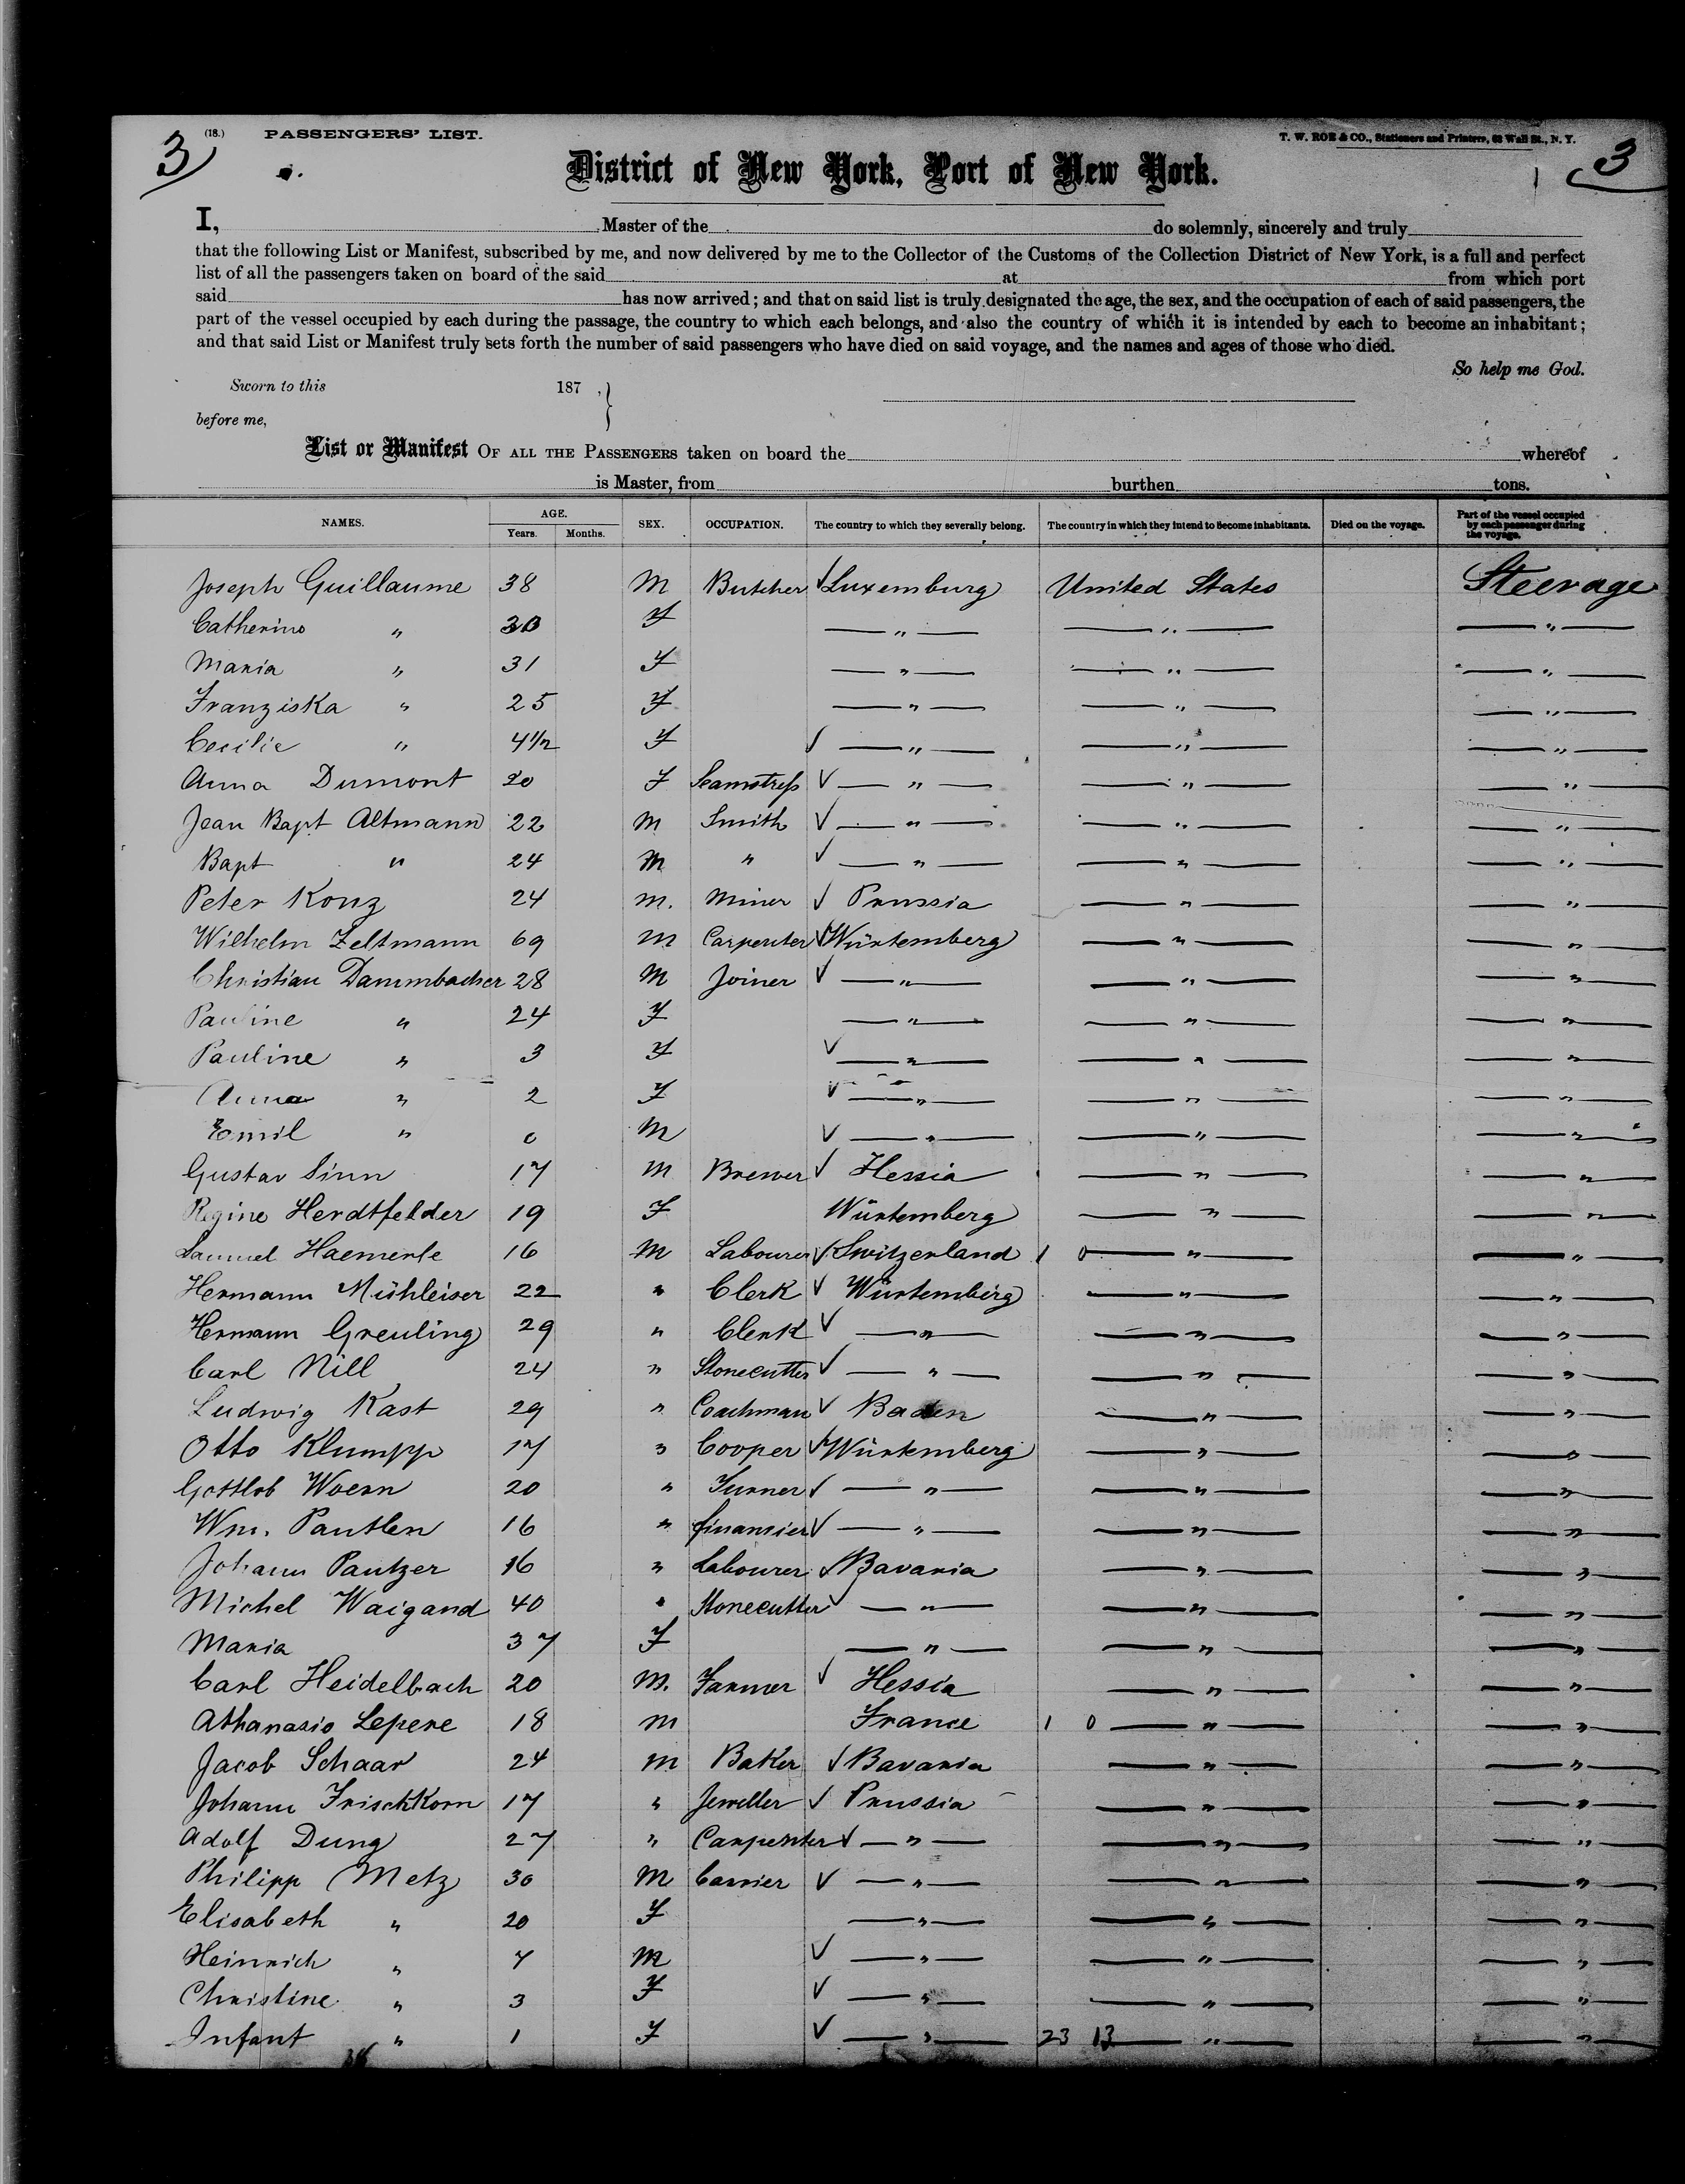 3 (18.) PASSENGERS' LIST. T. W. ROE & CO., Stationers and Printers, 63 Wall St., N. Y. 3
District of New York, Port of New York.
I, Master of the do solemnly, sincerely and truly
that the following List or Manifest, subscribed by me, and now delivered by me to the Collector of the Customs of the Collection District of New York, is a full and perfect
list of all the passengers taken on board of the said at from which port
said has now arrived; and that on said list is truly designated the age, the sex, and the occupation of each of said passengers, the
part of the vessel occupied by each during the passage, the country to which each belongs, and also the country of which it is intended by each to become an inhabitant;
and that said List or Manifest truly sets forth the number of said passengers who have died on said voyage, and the names and ages of those who died.
So help me God.
Sworn to this 187 }
before me,
List or Manifest OF ALL THE PASSENGERS taken on board the whereof
is Master, from burthen tons.
NAMES. AGE. Years. Months. SEX. OCCUPATION. The country to which they severally belong. The country in which they intend to become inhabitants. Died on the voyage. Part of the vessel occupied by each passenger during the voyage.
Joseph Guillaume 38 M Butcher ✓ Luxemburg United States Steerage
Catherine " 30 F — " — — " — — " —
Maria " 31 F — " — — " — — " —
Franziska " 25 F — " — — " — — " —
Cecilie " 4 1/2 F ✓ — " — — " — — " —
Anna Dumont 20 F Seamstress ✓ — " — — " — — " —
Jean Bapt Altmann 22 M Smith ✓ — " — — " — — " —
Bapt " 24 M " ✓ — " — — " — — " —
Peter Konz 24 M. Miner ✓ Prussia — " — — " —
Wilhelm Zeltmann 69 M Carpenter ✓ Würtemberg — " — — " —
Christian Dammbacher 28 M Joiner ✓ — " — — " — — " —
Pauline " 24 F — " — — " — — " —
Pauline " 3 F ✓ — " — — " — — " —
Anna " 2 F ✓ — " — — " — — " —
Emil " 0 M ✓ — " — — " — — " —
Gustav Sinn 17 M Brewer ✓ Hessia — " — — " —
Regine Herdtfelder 19 F Würtemberg — " — — " —
Samuel Haemerle 16 M Labourer ✓ Switzerland 1 0 — " — — " —
Hermann Mühleiser 22 " Clerk ✓ Würtemberg — " — — " —
Hermann Greuling 29 " Clerk ✓ — " — — " — — " —
Carl Nill 24 " Stonecutter ✓ — " — — " — — " —
Ludwig Kast 29 " Coachman ✓ Baden — " — — " —
Otto Klumpp 17 " Cooper ✓ Würtemberg — " — — " —
Gottlob Woern 20 " Turner ✓ — " — — " — — " —
Wm. Pantlen 16 " financier ✓ — " — — " — — " —
Johann Pantzer 16 " Labourer ✓ Bavaria — " — — " —
Michel Waigand 40 " Stonecutter ✓ — " — — " — — " —
Maria 37 F — " — — " — — " —
Carl Heidelbach 20 M. Farmer ✓ Hessia — " — — " —
Athanasio Lepere 18 M France 1 0 — " — — " —
Jacob Schaar 24 M Baker ✓ Bavaria — " — — " —
Johann Frischkorn 17 " Jeweller ✓ Prussia — " — — " —
Adolf Dung 27 " Carpenter ✓ — " — — " — — " —
Philipp Metz 30 M Carrier ✓ — " — — " — — " —
Elisabeth " 20 F — " — — " — — " —
Heinrich " 7 M ✓ — " — — " — — " —
Christine " 3 F ✓ — " — — " — — " —
Infant " 1 F ✓ — " — 23 13 — " — — " —